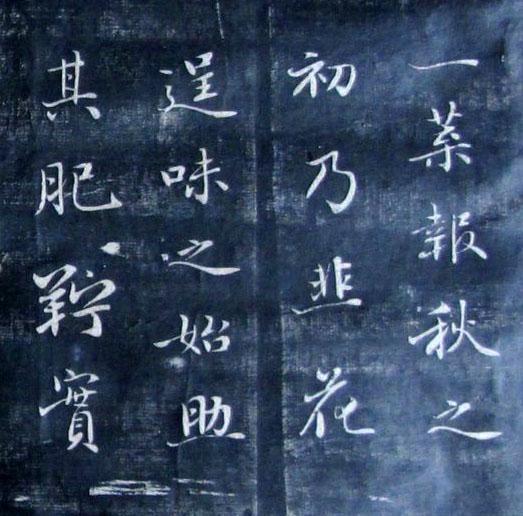 一葉報秋之
初乃韭花
逞味之始助
其肥羜實